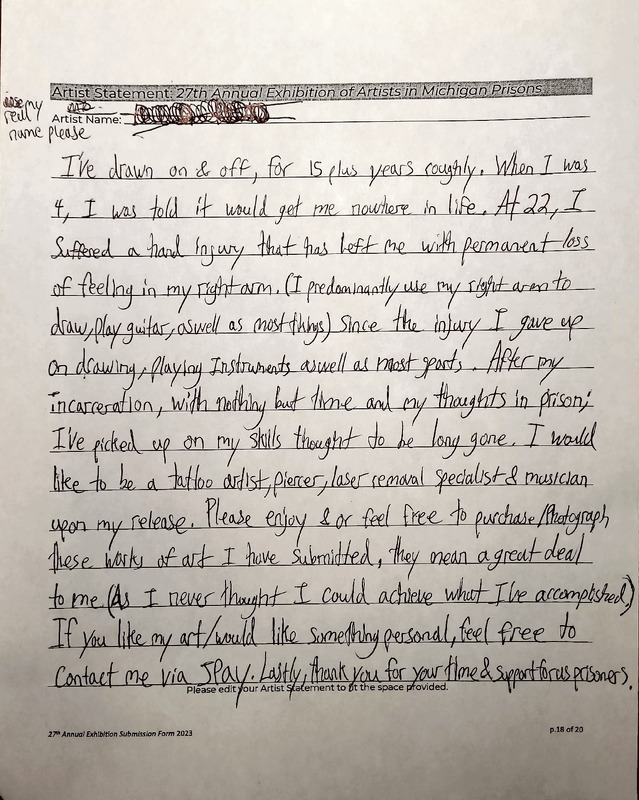 Artist Statement: 27th Annual Exhibition of Artists in Michigan Prisons
use my
real
name please
Artist Name:
I've drawn on & off, for 15 plus years roughly. When I was
4, I was told it would get me nowhere in life. At 22, I
Suffered a hard injury that has left me with permanent loss
of feeling in my right arm. (I predominantly use my right arm to
draw, play guitar, aswell as most things) Since the injury I gave up
on drawing, playing Instruments aswell as most sports. After my
incarceration, with nothing but time and my thoughts in prison;
I've picked up on my skills thought to be long gone. I would
like to be a tattoo artist, piercer, laser removal specialist & musician
upon my release. Please enjoy & or feel free to purchase/Photograph
these works of art I have submitted, they mean a great deal
to me (As I never thought I could achieve what I've accomplished.)
If you like my art/would like something personal, feel free to
Contact me via JPay. Lastly, thank you for your time & support for us prisoners.
Please edit your Artist Statement to fit the space provided.
27th Annual Exhibition Submission Form 2023
p.18 of 20